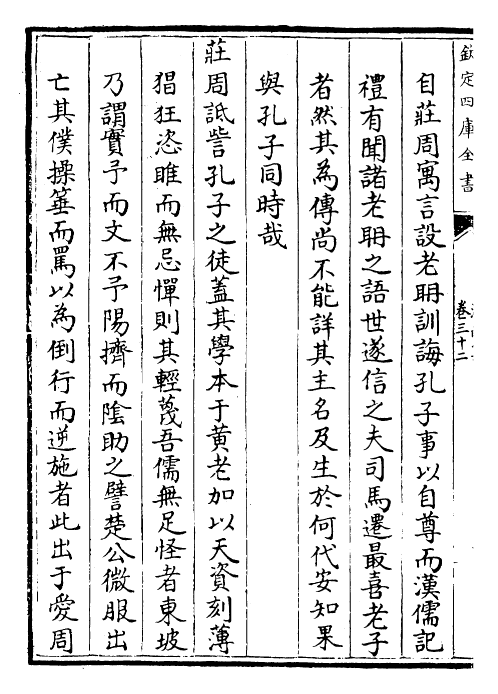 欽定四庫全書
卷三十二
自莊周寓言設老耼訓誨孔子事以自尊而漢儒記
禮有聞諸老耼之語世遂信之夫司馬遷最喜老子
者然其為傳尚不能詳其主名及生於何代安知果
與孔子同時哉
莊周詆訾孔子之徒蓋其學本于黄老加以天資刻薄
猖狂恣睢而無忌憚則其輕蔑吾儒無足怪者東坡
乃謂實予而文不予陽擠而陰助之譬楚公微服出
亡其僕操箠而罵以為倒行而逆施者此出于愛周